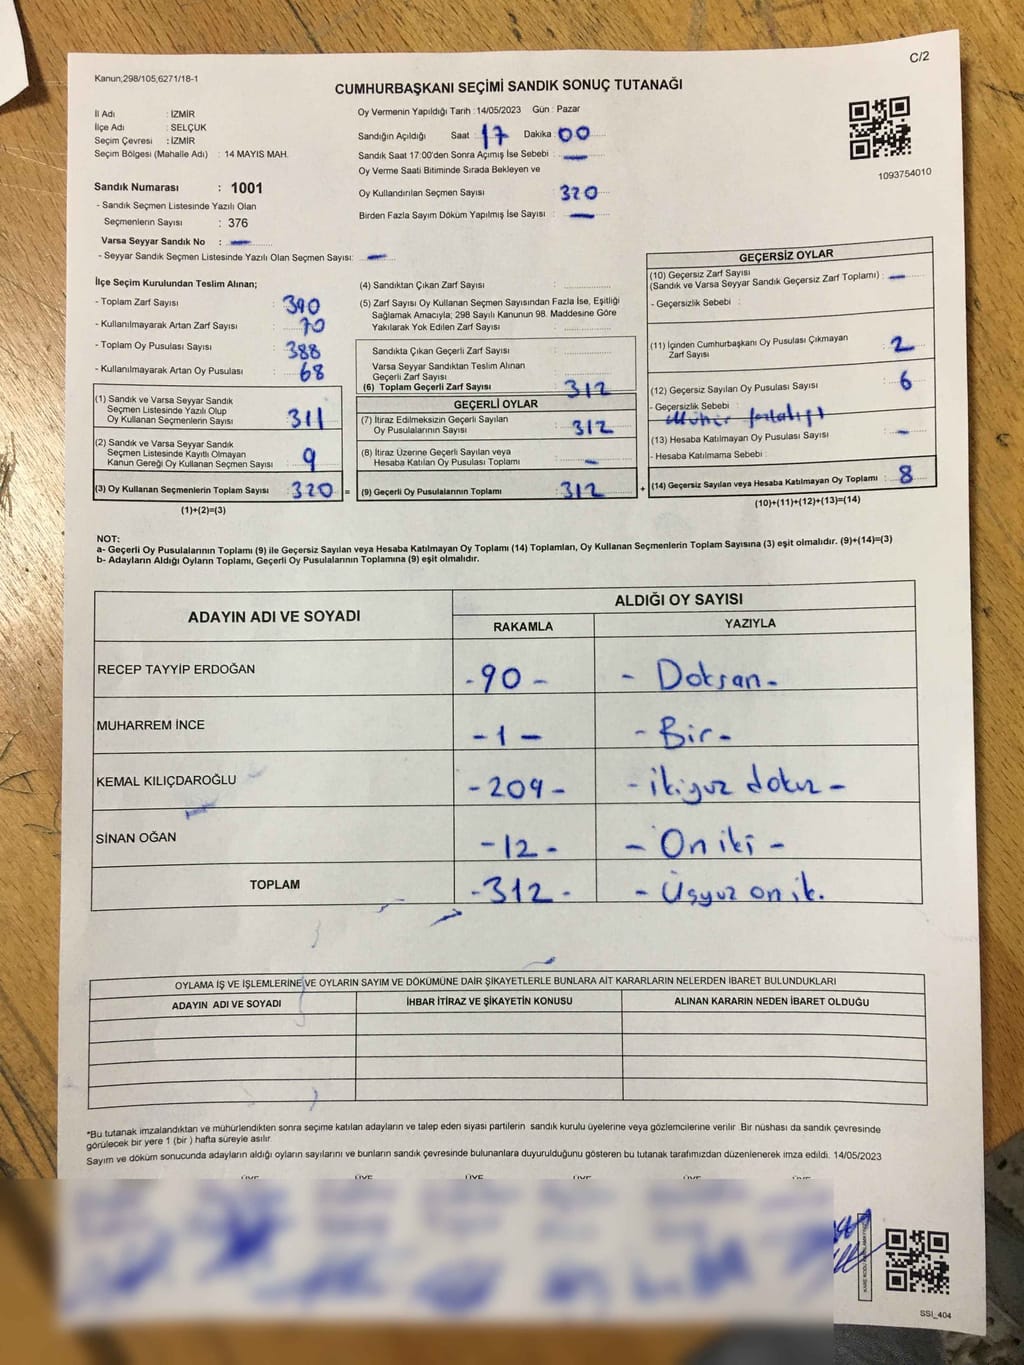 C/2
Kanun,298/105,6271/18-1
CUMHURBAŞKANI SEÇİMİ SANDIK SONUÇ TUTANAĞI
İl Adı : İZMİR
İlçe Adı : SELÇUK
Seçim Çevresi : İZMİR
Seçim Bölgesi (Mahalle Adı) : 14 MAYIS MAH.
Sandık Numarası : 1001
- Sandık Seçmen Listesinde Yazılı Olan
Seçmenlerin Sayısı : 376
Varsa Seyyar Sandık No : —
- Seyyar Sandık Seçmen Listesinde Yazılı Olan Seçmen Sayısı: —
Oy Vermenin Yapıldığı Tarih : 14/05/2023 Gün : Pazar
Sandığın Açıldığı Saat : 17 Dakika : 00
Sandık Saat 17:00'den Sonra Açımış İse Sebebi : —
Oy Verme Saati Bitiminde Sırada Bekleyen ve
Oy Kullandırılan Seçmen Sayısı : 320
Birden Fazla Sayım Döküm Yapılmış İse Sayısı : —
1093754010
İlçe Seçim Kurulundan Teslim Alınan;
- Toplam Zarf Sayısı : 390
- Kullanılmayarak Artan Zarf Sayısı : 70
- Toplam Oy Pusulası Sayısı : 388
- Kullanılmayarak Artan Oy Pusulası : 68
(1) Sandık ve Varsa Seyyar Sandık
Seçmen Listesinde Yazılı Olup
Oy Kullanan Seçmenlerin Sayısı : 311
(2) Sandık ve Varsa Seyyar Sandık
Seçmen Listesinde Kayıtlı Olmayan
Kanun Gereği Oy Kullanan Seçmen Sayısı : 9
(3) Oy Kullanan Seçmenlerin Toplam Sayısı : 320 =
(1)+(2)=(3)
(4) Sandıktan Çıkan Zarf Sayısı :
(5) Zarf Sayısı Oy Kullanan Seçmen Sayısından Fazla İse, Eşitliği
Sağlamak Amacıyla; 298 Sayılı Kanunun 98. Maddesine Göre
Yakılarak Yok Edilen Zarf Sayısı :
Sandıkta Çıkan Geçerli Zarf Sayısı :
Varsa Seyyar Sandıktan Teslim Alınan
Geçerli Zarf Sayısı :
(6) Toplam Geçerli Zarf Sayısı : 312
GEÇERLİ OYLAR
(7) İtiraz Edilmeksizin Geçerli Sayılan
Oy Pusulalarının Sayısı : 312
(8) İtiraz Üzerine Geçerli Sayılan veya
Hesaba Katılan Oy Pusulası Toplamı : —
(9) Geçerli Oy Pusulalarının Toplamı : 312 +
GEÇERSİZ OYLAR
(10) Geçersiz Zarf Sayısı
(Sandık ve Varsa Seyyar Sandık Geçersiz Zarf Toplamı) : —
- Geçersizlik Sebebi :
(11) İçinden Cumhurbaşkanı Oy Pusulası Çıkmayan
Zarf Sayısı : 2
(12) Geçersiz Sayılan Oy Pusulası Sayısı : 6
- Geçersizlik Sebebi :
(13) Hesaba Katılmayan Oy Pusulası Sayısı : —
- Hesaba Katılmama Sebebi :
(14) Geçersiz Sayılan veya Hesaba Katılmayan Oy Toplamı : 8
(10)+(11)+(12)+(13)=(14)
NOT:
a- Geçerli Oy Pusulalarının Toplamı (9) ile Geçersiz Sayılan veya Hesaba Katılmayan Oy Toplamı (14) Toplamları, Oy Kullanan Seçmenlerin Toplam Sayısına (3) eşit olmalıdır. (9)+(14)=(3)
b- Adayların Aldığı Oyların Toplamı, Geçerli Oy Pusulalarının Toplamına (9) eşit olmalıdır.
ADAYIN ADI VE SOYADI ALDIĞI OY SAYISI
RAKAMLA YAZIYLA
RECEP TAYYİP ERDOĞAN - 90 - - Doksan -
MUHARREM İNCE - 1 - - Bir -
KEMAL KILIÇDAROĞLU - 209 - - ikiyüz dokuz -
SİNAN OĞAN - 12 - - On iki -
TOPLAM - 312 - - Üçyüz on ik.
OYLAMA İŞ VE İŞLEMLERİNE VE OYLARIN SAYIM VE DÖKÜMÜNE DAİR ŞİKAYETLERLE BUNLARA AİT KARARLARIN NELERDEN İBARET BULUNDUKLARI
ADAYIN ADI VE SOYADI İHBAR İTİRAZ VE ŞİKAYETİN KONUSU ALINAN KARARIN NEDEN İBARET OLDUĞU
*Bu tutanak imzalandıktan ve mühürlendikten sonra seçime katılan adayların ve talep eden siyasi partilerin sandık kurulu üyelerine veya gözlemcilerine verilir .Bir nüshası da sandık çevresinde
görülecek bir yere 1 (bir ) hafta süreyle asılır.
Sayım ve döküm sonucunda adayların aldığı oyların sayılarını ve bunların sandık çevresinde bulunanlara duyurulduğunu gösteren bu tutanak tarafımızdan düzenlenerek imza edildi. 14/05/2023
ÜYE ÜYE ÜYE ÜYE ÜYE ÜYE
SSİ_404